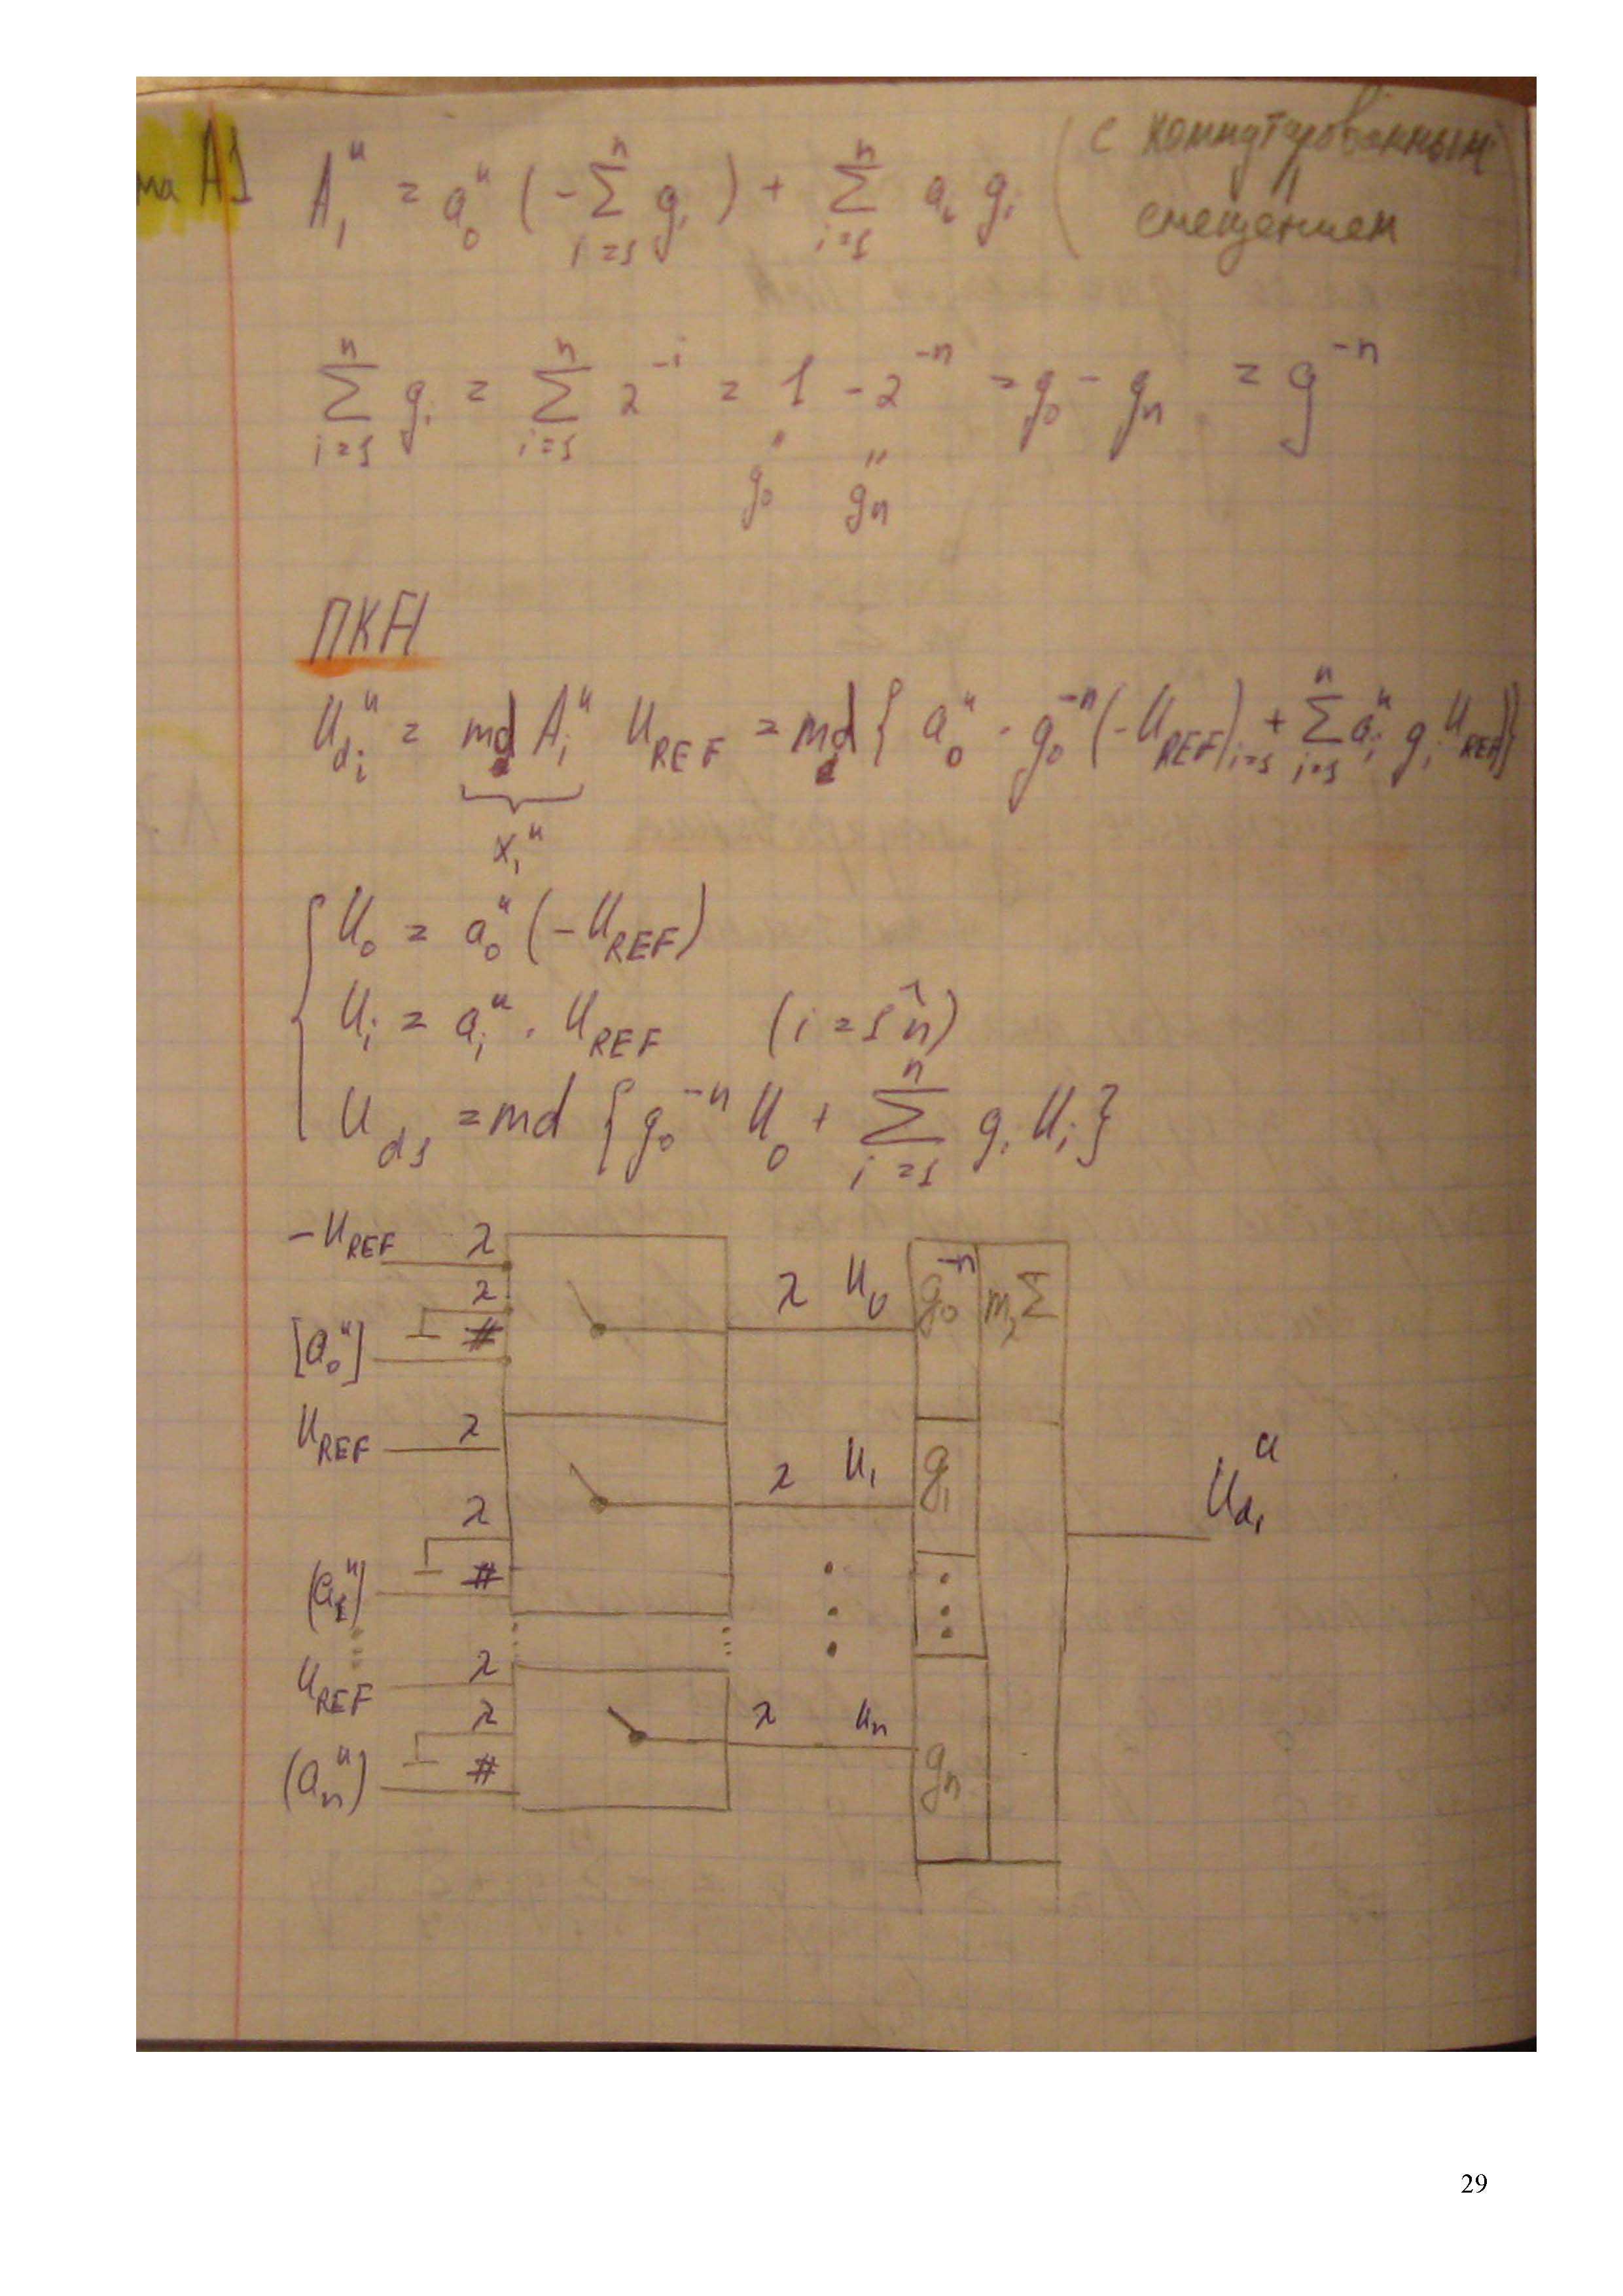 ма A1 A₁ᵘ = a₀ᵘ (-∑ⁿᵢ₌₁ gᵢ) + ∑ⁿᵢ₌₁ aᵢ gᵢ (с коммутированным
смещением)
∑ⁿᵢ₌₁ gᵢ = ∑ⁿᵢ₌₁ 2⁻ⁱ = 1 - 2⁻ⁿ = g₀ - gₙ = g⁻ⁿ
" "
g₀ gₙ
ПКН
U_dᵢᵘ = md Aᵢᵘ U_REF = md { a₀ᵘ · g₀⁻ⁿ (-U_REF)ᵢ₌₁ + ∑ⁿᵢ₌₁ aᵢᵘ gᵢ U_REF }
x₁ᵘ
U₀ = a₀ᵘ (-U_REF)
Uᵢ = aᵢᵘ · U_REF (i = 1^n)
U_d1 = md { g₀⁻ⁿ U₀ + ∑ⁿᵢ₌₁ gᵢ Uᵢ }
-U_REF λ
λ λ U₀ g₀⁻ⁿ m₂∑
[a₀ᵘ] #
U_REF λ
λ U₁ g₁
λ U_d₁ᵘ
(a₁ᵘ) #
U_REF λ
λ λ Uₙ
(aₙᵘ) # gₙ
29